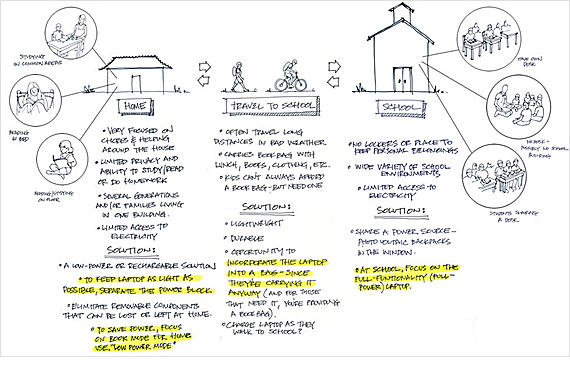 STUDYING
IN COMMON AREAS
READING
IN BED
READING/STUDYING
ON FLOOR
HOME
• VERY FOCUSED ON
CHORES & HELPING
AROUND THE HOUSE
• LIMITED PRIVACY AND
ABILITY TO STUDY/READ
OR DO HOMEWORK
• SEVERAL GENERATIONS
AND/OR FAMILIES LIVING
IN ONE BUILDING.
• LIMITED ACCESS TO
ELECTRICITY
SOLUTION:
• A LOW-POWER OR RECHARGEABLE SOLUTION
• TO KEEP LAPTOP AS LIGHT AS
POSSIBLE, SEPARATE THE POWER BLOCK
• ELIMINATE REMOVABLE COMPONENTS
THAT CAN BE LOST OR LEFT AT HOME.
• TO SAVE POWER, FOCUS
ON BOOK MODE FOR HOME
USE. "LOW POWER MODE"
TRAVEL TO SCHOOL
• OFTEN TRAVEL LONG
DISTANCES IN BAD WEATHER
• CARRIES BOOKBAG WITH
LUNCH, BOOKS, CLOTHING, ETC.
• KIDS CAN'T ALWAYS AFFORD
A BOOK BAG - BUT NEED ONE
SOLUTION:
• LIGHTWEIGHT
• DURABLE
• OPPORTUNITY TO
INCORPORATE THE LAPTOP
INTO A BAG - SINCE
THEY'RE CARRYING IT
ANYWAY (AND FOR THOSE
THAT NEED IT, YOU'RE PROVIDING
A BOOK BAG).
• CHARGE LAPTOP AS THEY
WALK TO SCHOOL?
SCHOOL
• NO LOCKERS OR PLACE TO
KEEP PERSONAL BELONGINGS
• WIDE VARIETY OF SCHOOL
ENVIRONMENTS
• LIMITED ACCESS TO
ELECTRICITY
SOLUTION:
• SHARE A POWER SOURCE -
PHOTOVOLTAIC BACKPACKS
IN THE WINDOW.
• AT SCHOOL, FOCUS ON THE
FULL-FUNTIONALITY (FULL-
POWER) LAPTOP.
OWN
DESK
NO DESK -
POSSIBLY NO SCHOOL
BUILDING
STUDENTS SHARING
A DESK